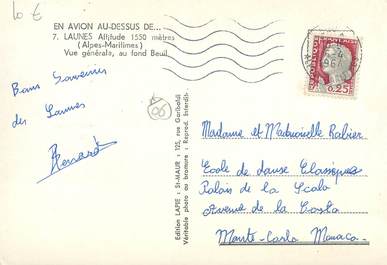 10 €
EN AVION AU-DESSUS DE...
7. LAUNES Altitude 1550 mètres
(Alpes-Maritimes)
Vue générale, au fond Beuil
Bons Souvenirs
des Launes
06
Edition LAPIE : St-MAUR : 125, rue Garibaldi
Véritable photo au bromure : Reprod. Interdite
0,25
Madame et Mademoiselle Rabier
Ecole de danse Classiques
Palais de la Scala
Avenue de la Costa
Monte-Carlo Monaco